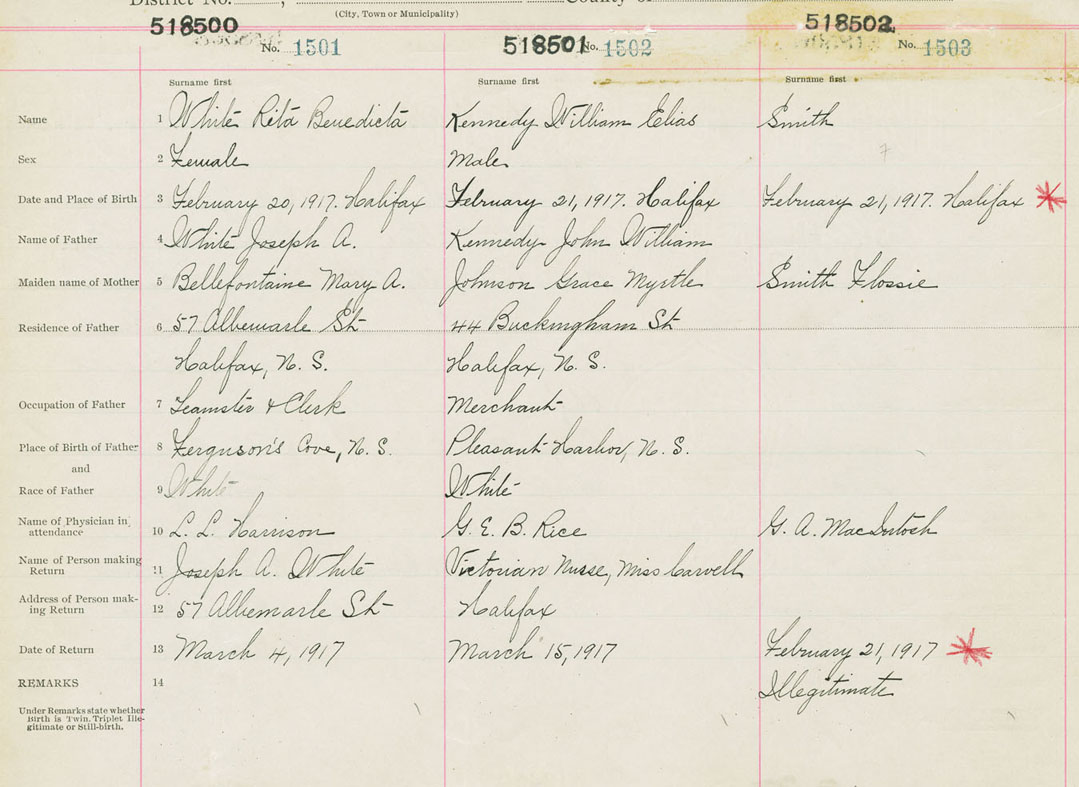 District No. , County of
(City, Town or Municipality)
518500 518501 518502
No. 1501 No. 1502 No. 1503
Surname first Surname first Surname first
Name 1 White Rita Benedicta Kennedy William Elias Smith
Sex 2 Female Male ?
Date and Place of Birth 3 February 20, 1917. Halifax February 21, 1917. Halifax February 21, 1917. Halifax
Name of Father 4 White Joseph A. Kennedy John William
Maiden name of Mother 5 Bellefontaine Mary A. Johnson Grace Myrtle Smith Flossie
Residence of Father 6 57 Albemarle St 44 Buckingham St
Halifax, N. S. Halifax, N. S.
Occupation of Father 7 Teamster & Clerk Merchant
Place of Birth of Father 8 Ferguson's Cove, N. S. Pleasant Harbor, N. S.
and
Race of Father 9 White White
Name of Physician in
attendance 10 L. L. Harrison G. E. B. Rice G. A. MacIntosh
Name of Person making
Return 11 Joseph A. White Victorian Nurse, Miss Carvell
Address of Person mak-
ing Return 12 57 Albemarle St Halifax
Date of Return 13 March 4, 1917 March 15, 1917 February 21, 1917
REMARKS 14 Illegitimate
Under Remarks state whether
Birth is Twin, Triplet Ille-
gitimate or Still-birth.